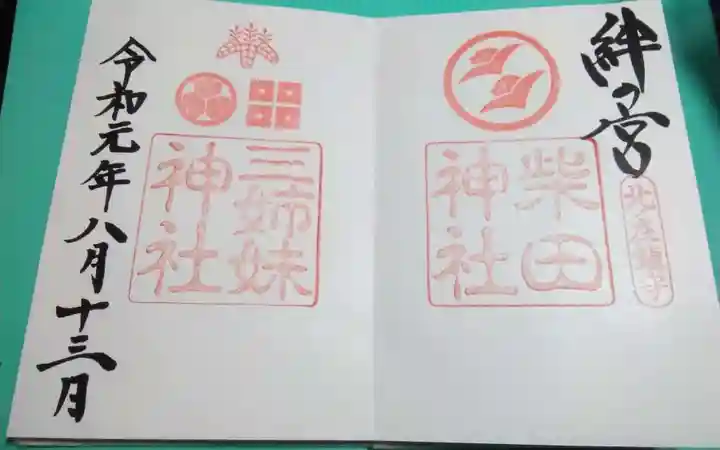 絆の宮
北庄鎮守
柴田
神社
三姉妹
神社
令和元年八月十三月